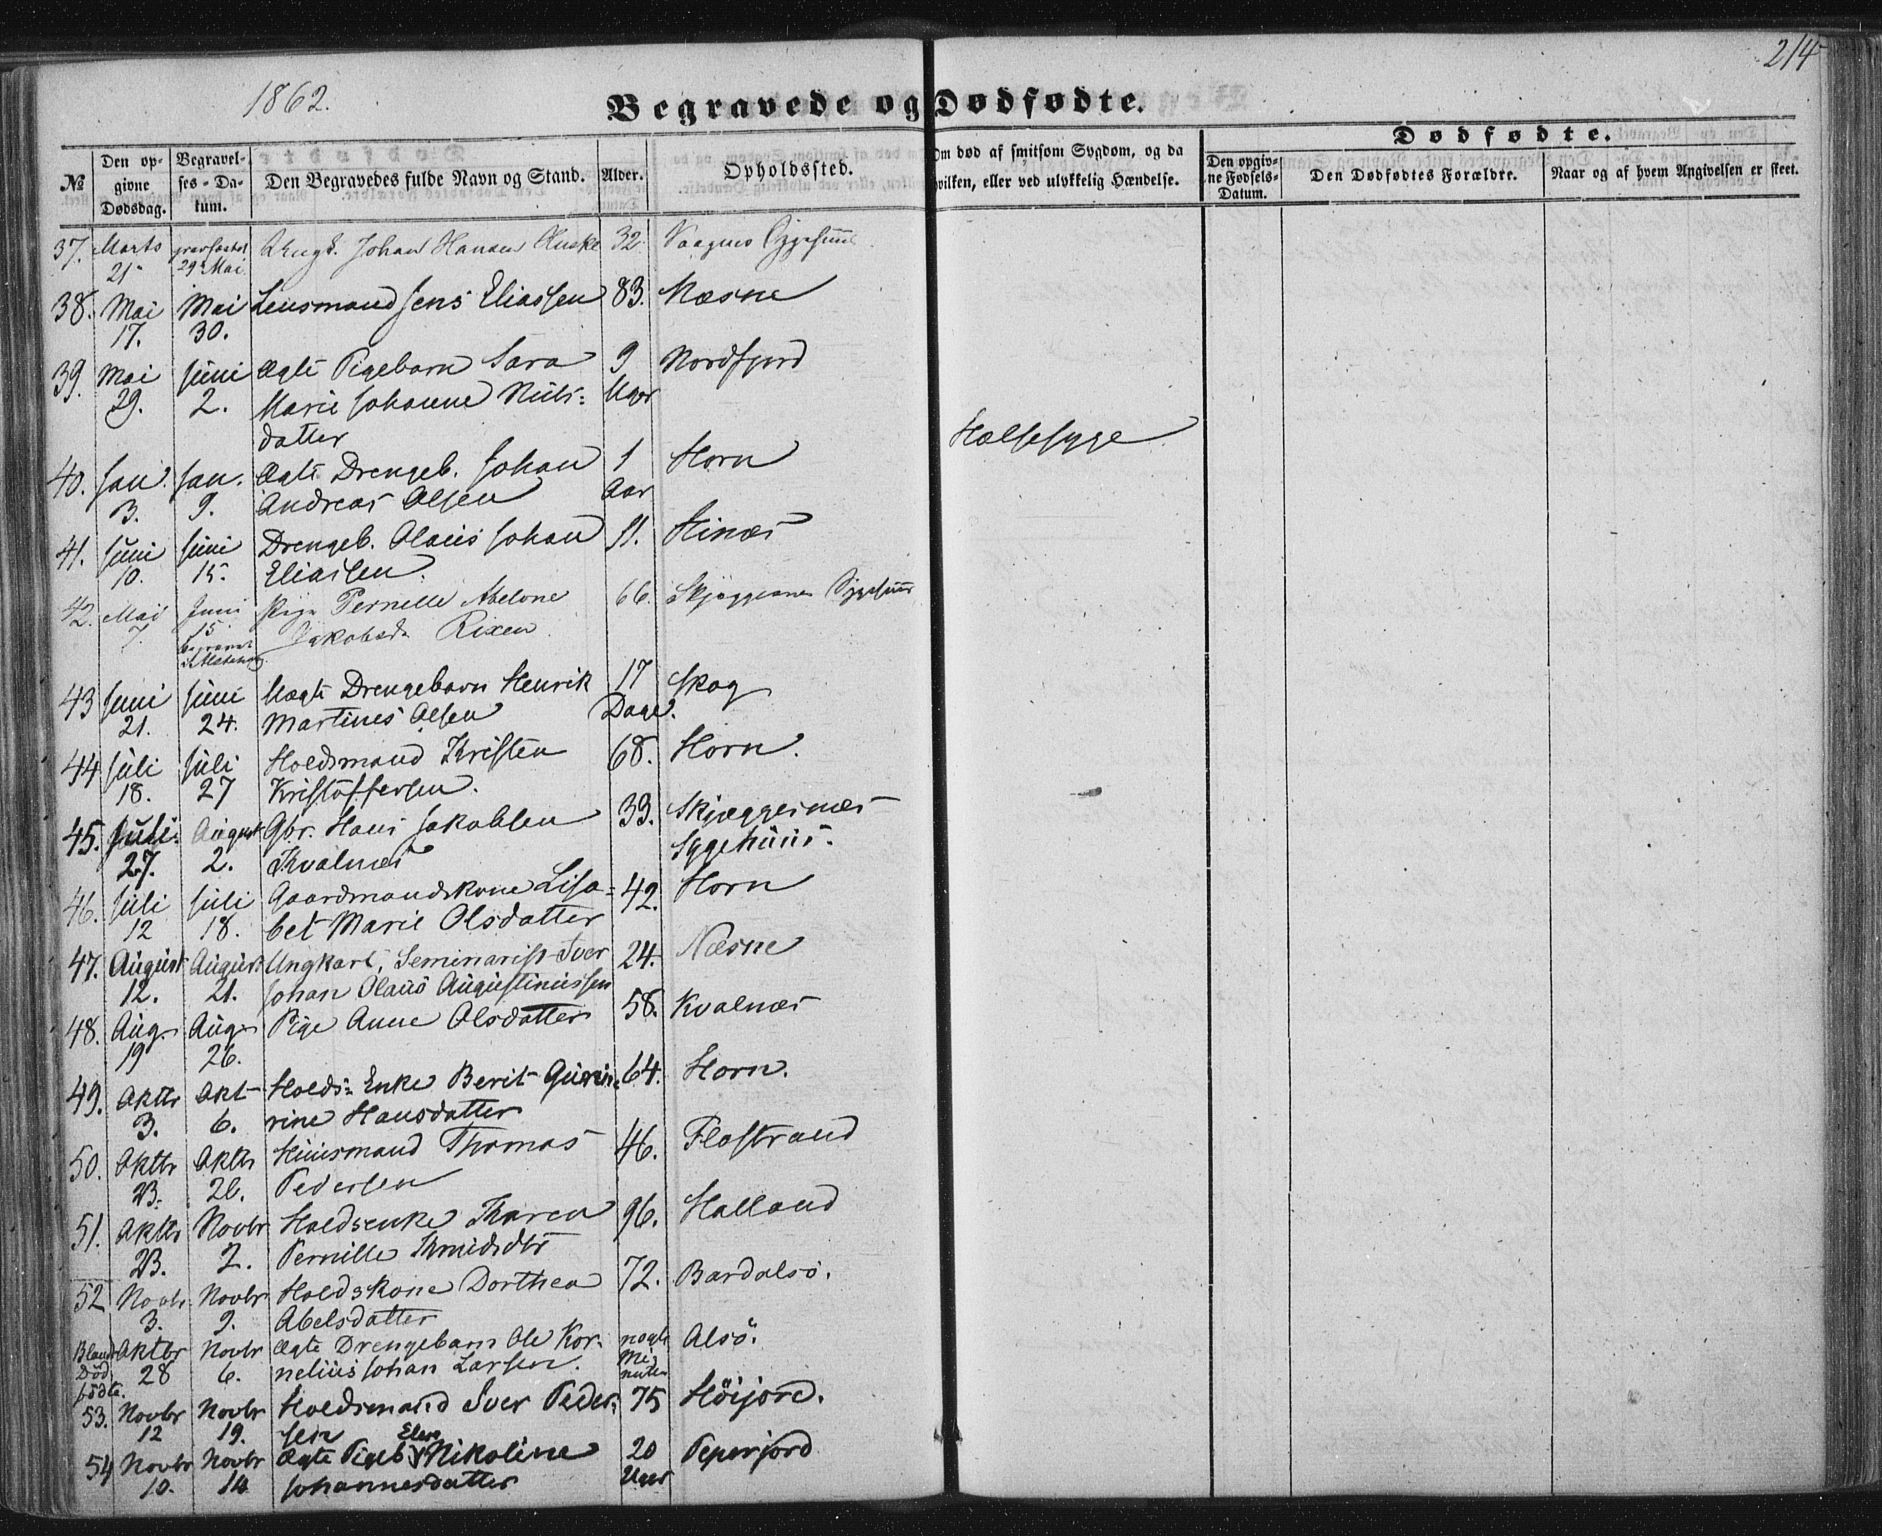 214
1862.
Begravede og Dødfødte.
Dødfødte.
№
Den opgivne Dødsdag.
Begravelses-Datum.
Den Begravedes fulde Navn og Stand.
Alder.
Opholdssted.
Om død af smitsom Sygdom, og da hvilken, eller ved ulykkelig Hændelse.
Den opgivne Fødsels-Datum.
Den Dødfødtes Forældre.
Naar og af hvem Angivelsen er skeet.
37. Marts Johan Hansen 32.
21 29 Mai
38. Mai Mai Lensmand Jens Eliassen 83. Næsne
17. 30.
39. Mai Juni Ægte Pigebarn Sara 9 Nordfjord
29. 2. Marie Johanne Niels= Uger
datter
40. Jan. Jan. Ægte Drengeb. Johan 1 Horn Halssyge
3. 9. Andreas Olsen Aar
41. Juni Juni Drengeb. Olaus Johan 11. Hinæs
10. 15. Eliassen.
42. Mai Juni Pige Pernelle Abelone 66.
7 15 Jakobsd. Rixen
43 Juni Juni Uægte Drengebarn Henrik 17 Skog
21. 24. Martines Olsen Dage.
44 Juli Juli Holdsmand Kristen 68. Horn.
18. 27 Kristoffersen.
45. Juli August Gbr. Hans Jakobsen 33. Skjeggesnæs
27. 2. Kvalnæs Sygehuus.
46. Juli Juli Gaardmandskone Lisa= 42. Horn
12 18. bet Marie Olsdatter
47. August August Ungkarl, Seminarist Iver 24. Næsne
12. 21. Johan Olaus Augustinussen
48. Aug. Aug. Pige Anne Olsdatter 58. Kvalnæs
19 26.
49. Oktbr Okt Holds= Enke Berit 64. Horn.
3. 6. rine Hansdatter
50. Oktbr Oktbr Huusmand Thomas 46. Flostrand
23. 26. Pedersen
51. Oktbr Novbr Holdsenke Karen 96. Halland
23. 2. Pernille
52 Novbr Novbr Holdskone Dorthea 72. Bardalsö.
3. 9. Abelsdatter
Blandt Oktbr Novbr Ægte Drengebarn Ole Kor= nogle Alsö.
Död 28 6. nelius Johan Larsen. Mi
födte. nuter
53. Novbr Novbr Holdsmand Iver Peder= 75 Höijord.
12 19. sen Elen
54 Novbr Novbr Ægte Pigeb. Nikoline 20
10. 14 Johannesdatter Uger